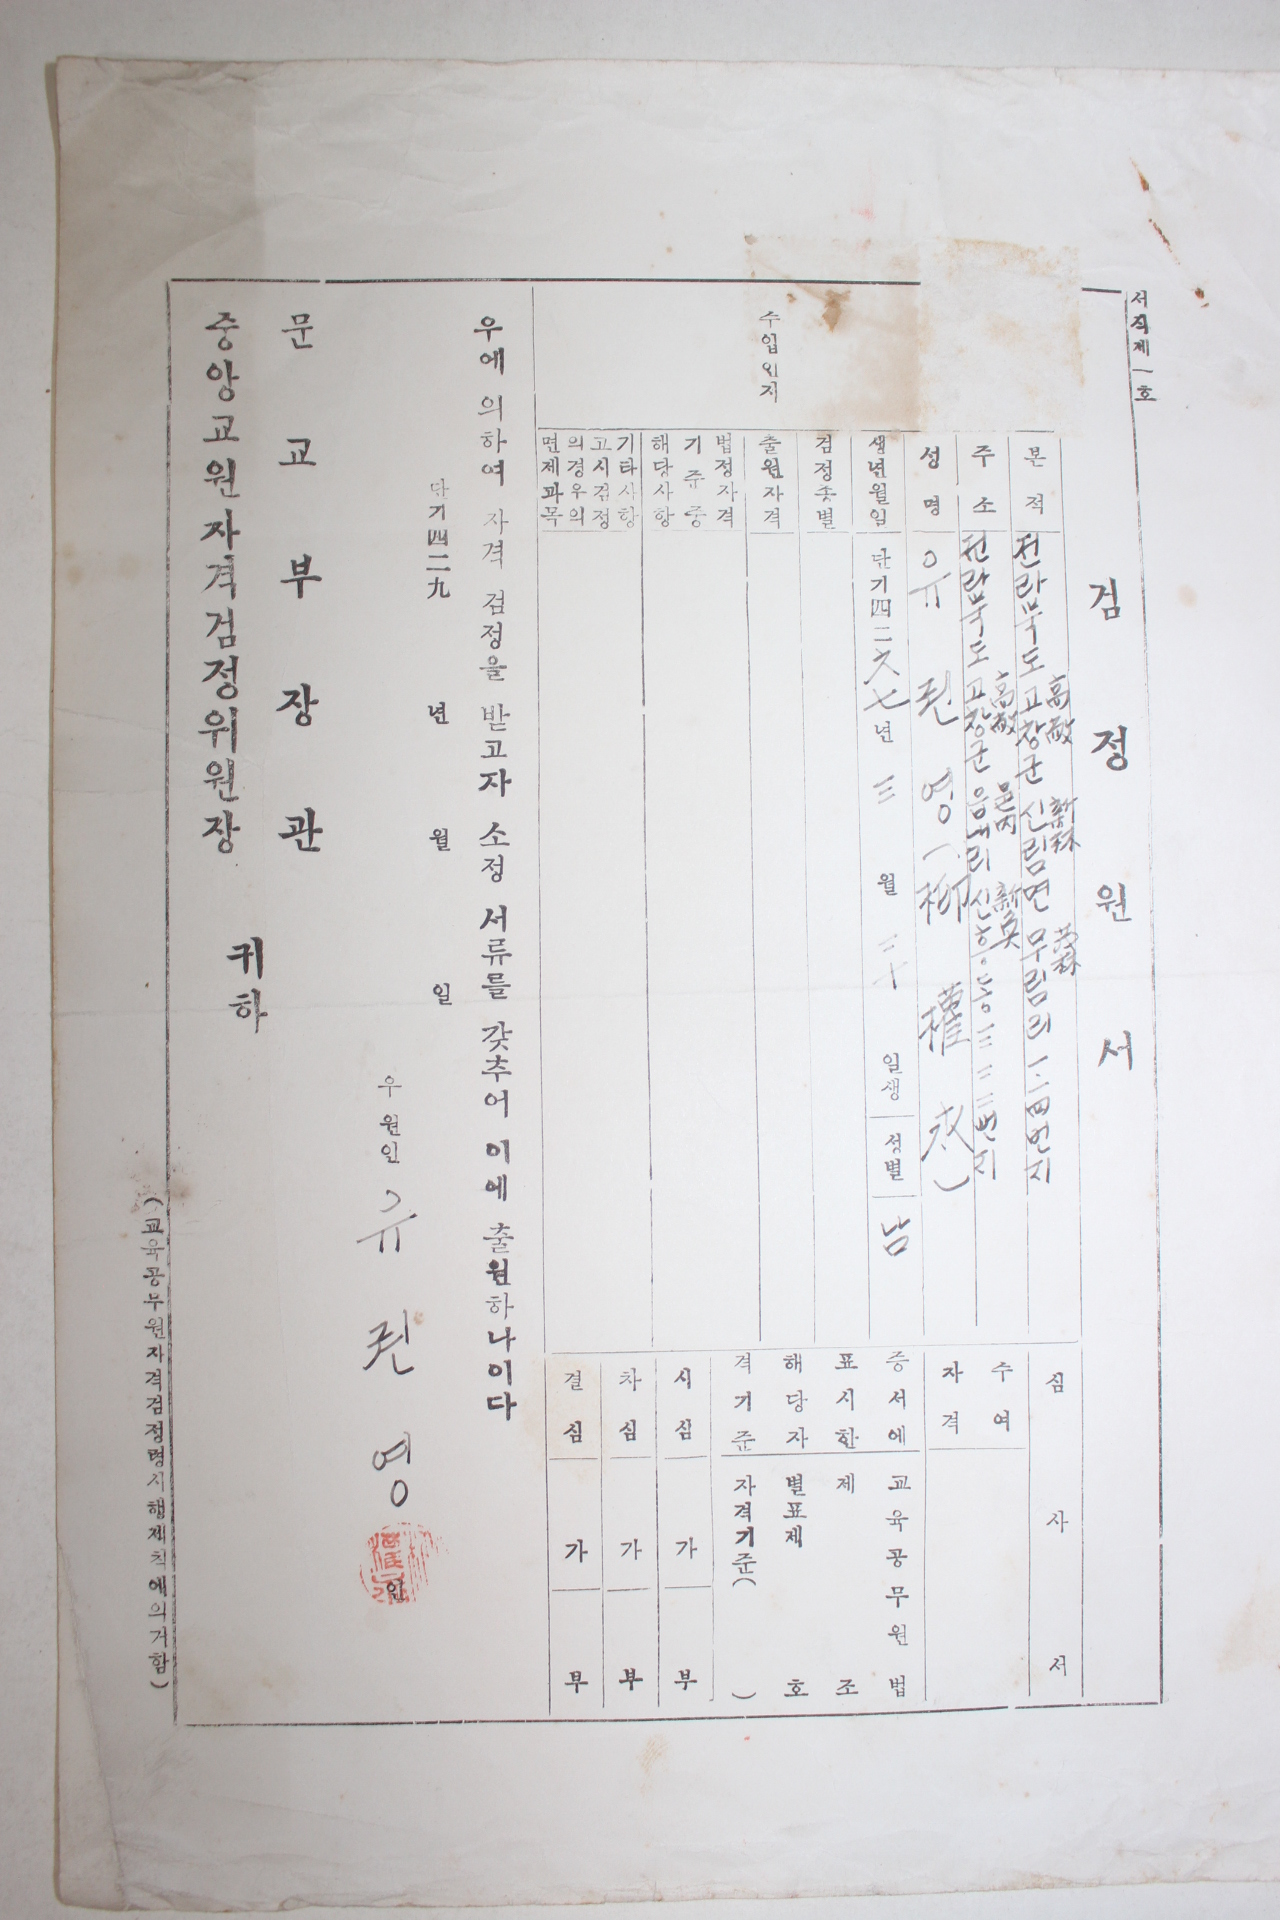 서식제一호
검정원서
본적 전라북도 고창군 신림면 무림리 一二四번지
高敞 新林 茂林
주소 전라북도 고창군 읍내리 신흥동 三三二번지
高敞 邑內
성명 유권영(柳權永)
생년월일 단기四二六七년 三월 二十일생 성별 남
검정종별
출원자격
수입인지
법정자격기준중해당사항
기타사항
고시검정의경우의면제과목
심사서
수여자격
증서에표시한해당자격기준
교육공무원법
제 조
별표제 호
(자격기준)
시심 가 부
차심 가 부
결심 가 부
우에 의하여 자격 검정을 받고자 소정 서류를 갖추어 이에 출원하나이다
단기四二九 년 월 일
우원인 유권영 인
문교부장관
중앙교원자격검정위원장
귀하
(교육공무원자격검정령시행세칙에의거함)